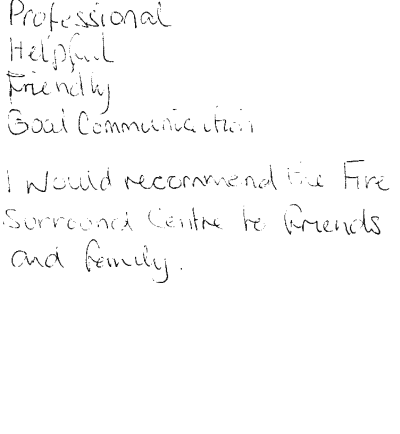 Professional
Helpful
Friendly
Good Communication
I would recommend the Fire
Surround Centre to friends
and family.